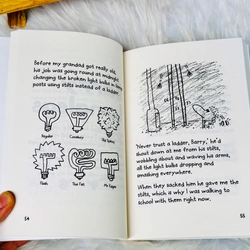 Before my grandad got really old,
his job was going round at midnight
changing the broken light bulbs in lamp
posts using stilts instead of a ladder.
Regular
Flash
54
'Never trust a ladder, Barry,' he'd
shout down at me from his stilts,
wobbling about and waving his arms,
all the light bulbs dropping and
smashing everywhere.
When they sacked him he gave me the
stilts, which is why I was walking to
school with them right now.
55